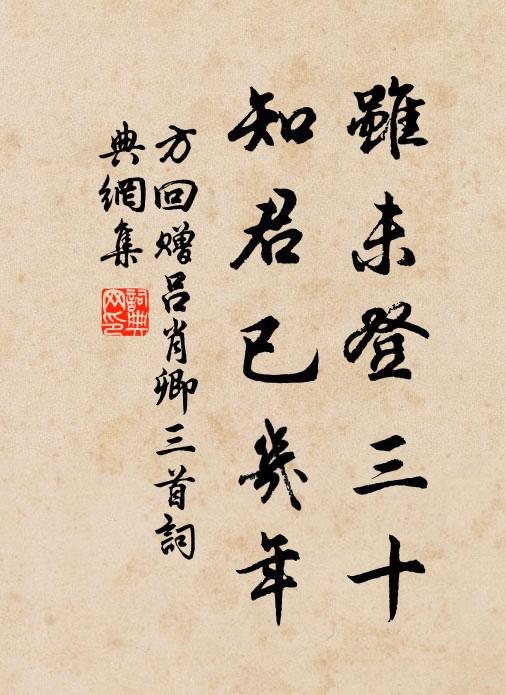 雖未登三十
知君已幾年
方回贈呂肖卿三首詞
典網集
詞典網印